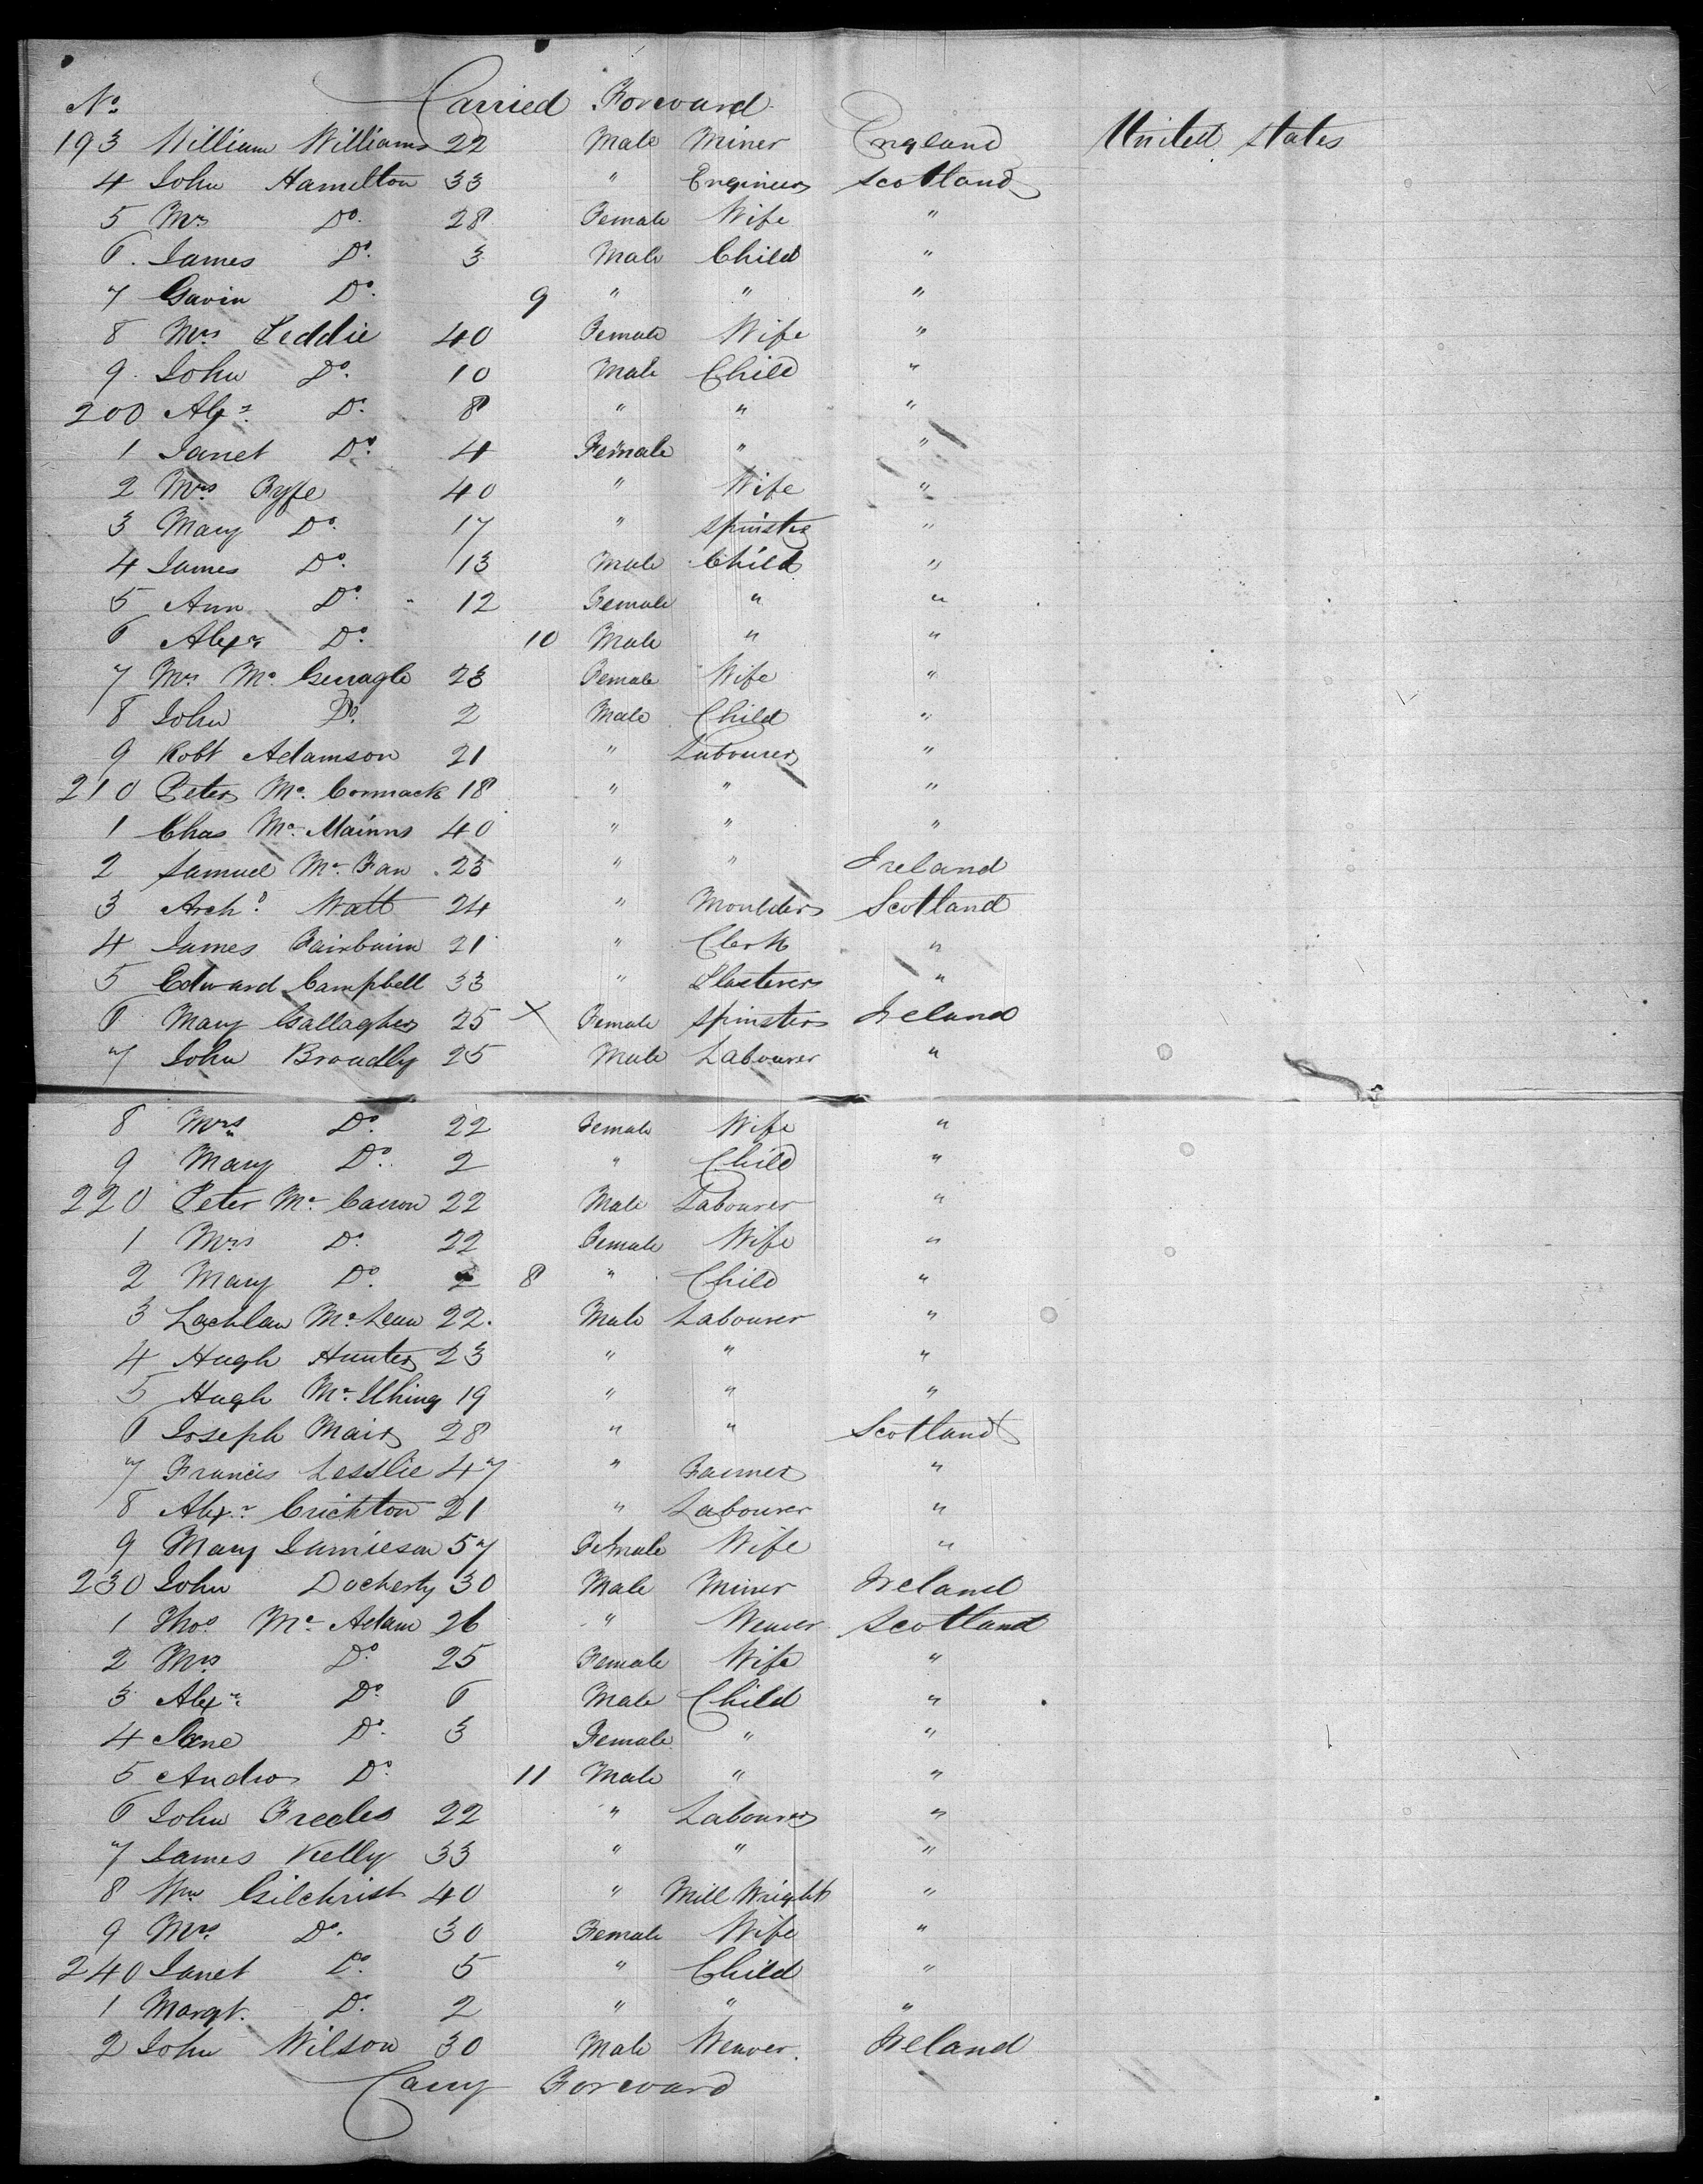 No. Carried Forward
193 William Williams 22 Male Miner England United States
4 John Hamilton 33 " Engineer Scotland
5 Mrs Do. 28 Female Wife "
6. James Do. 3 Male Child "
7 Gavin Do. 9 " " "
8 Mrs Peddie 40 Female Wife "
9. John Do. 10 Male Child "
200 Alexr. Do. 8 " " "
1 Janet Do. 4 Female " "
2 Mrs Fyfe 40 " Wife "
3 Mary Do. 17 " Spinster "
4 James Do. 13 Male Child "
5 Ann Do. 12 Female " "
6 Alexr. Do. 10 Male " "
7 Mrs Mc. Gonagle 23 Female Wife "
8 John Do. 2 Male Child "
9 Robt Adamson 21 " Labourer "
210 Peter Mc. Cormack 18 " " "
1 Chas Mc. 40 " " "
2 Samuel Mc. 23 " " Ireland
3 Archd. Watt 24 " Moulder Scotland
4 James Fairbairn 21 " Clerk "
5 Edward Campbell 33 " Plasterer "
6 Mary Gallagher 25 X Female Spinster Ireland
7 John Broadly 25 Male Labourer "
8 Mrs Do. 22 Female Wife "
9 Mary Do. 2 " Child "
220 Peter Mc. Carron 22 Male Labourer "
1 Mrs Do. 22 Female Wife "
2 Mary Do. 8 " Child "
3 Lachlan Mc. Lean 22. Male Labourer "
4 Hugh Hunter 23 " " "
5 Hugh Mc. 19 " " "
6 Joseph Mair 28 " " Scotland
7 Francis Lesslie 47 " Farmer "
8 Alexr. Crichton 21 " Labourer "
9 Mary Jamieson 57 Female Wife "
230 John Docherty 30 Male Miner Ireland
1 Thos. Mc. Adam 26 " Weaver Scotland
2 Mrs. Do. 25 Female Wife "
3 Alexr. Do. 6 Male Child "
4 Jane Do. 3 Female " "
5 Andw Do. 11 Male " "
6 John Freeles 22 " Labourer "
7 James Kelly 33 " " "
8 Wm Gilchrist 40 " Mill Wright "
9 Mrs. Do. 30 Female Wife "
240 Janet Do. 5 " Child "
1 Margt. Do. 2 " " "
2 John Wilson 30 Male Weaver. Ireland
Carry Forward